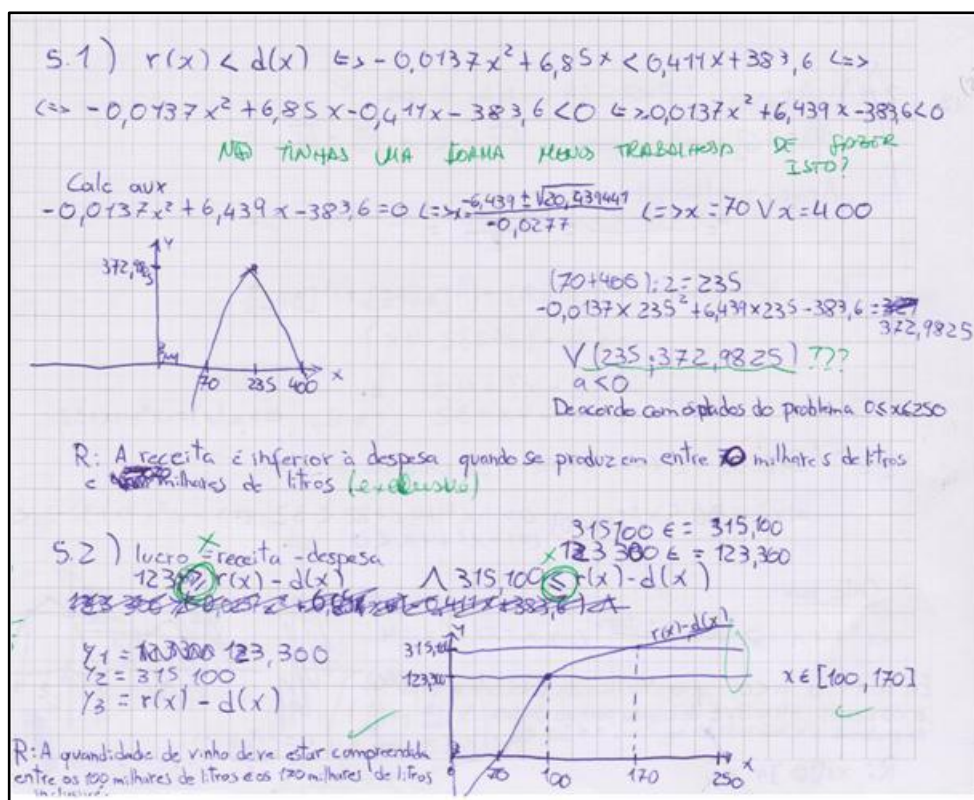 5.1) r(x) < d(x) <=> -0,0137x² + 6,85x < 0,411x + 383,6 <=>
<=> -0,0137x² + 6,85x - 0,411x - 383,6 < 0 <=> 0,0137x² + 6,439x - 383,6 < 0
NÃO TINHAS UMA FORMA MENOS TRABALHOSA DE FAZER
ISTO?
Calc aux
-0,0137x² + 6,439x - 383,6 = 0 <=> x = -6,439 ± √20,439441 / -0,0277 <=> x = 70 V x = 400
Y
372,98
70 235 400 x
(70+400):2 = 235
-0,0137 × 235² + 6,439 × 235 - 383,6 =
372,9825
V(235;372,9825) ???
a<0
De acordo com dados do problema 0≤x≤250
R: A receita é inferior à despesa quando se produzem entre 70 milhares de litros
e milhares de litros (exclusivé)
315100 € = 315,100
× 123300 € = 123,300
5.2) lucro = receita - despesa
123 ≥ r(x) - d(x) Λ 315,100 ≤ r(x) - d(x)
Y1 = 123,300
Y2 = 315,100
Y3 = r(x) - d(x)
Y
r(x)-d(x)
315,100
123,300
0 70 100 170 250 x
x ∈ [100, 170]
R: A quandidade de vinho deve estar compreendida
entre os 100 milhares de litros e os 170 milhares de litros